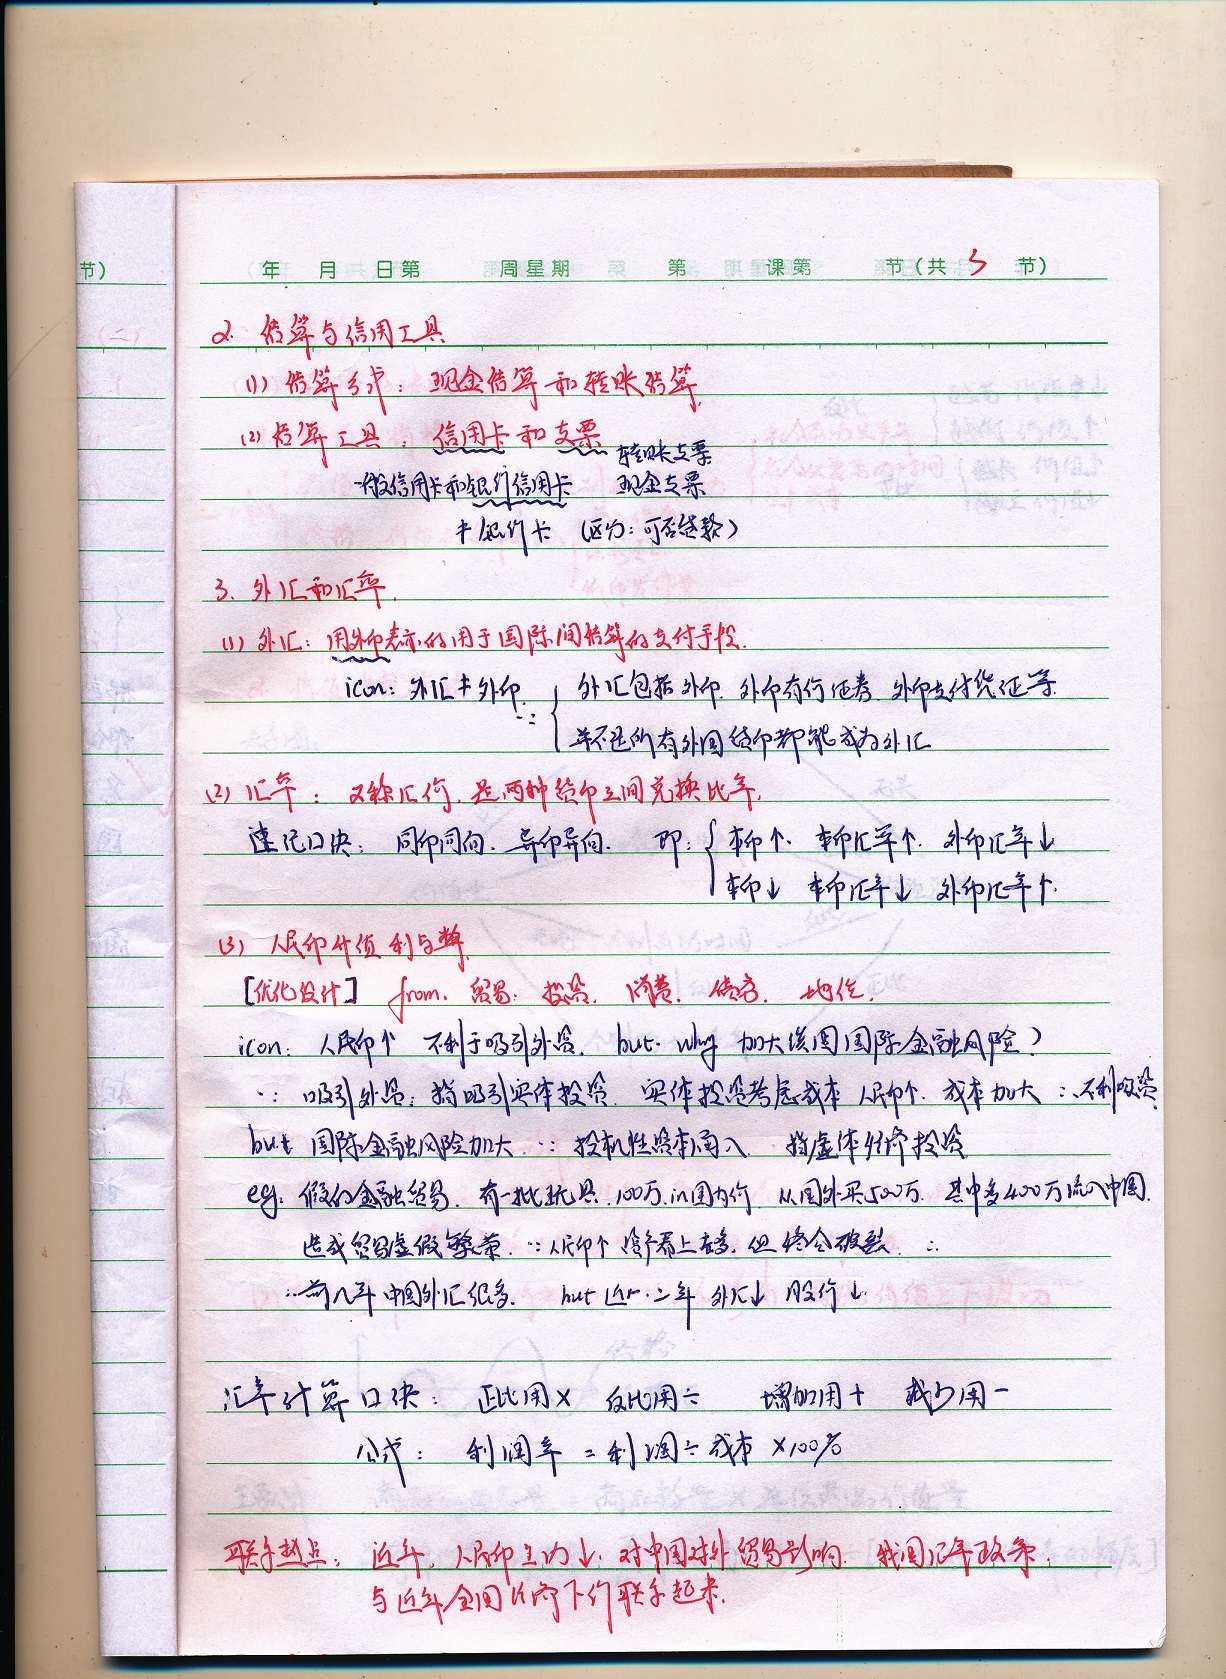 节)
年 月 日第 周星期 第 课第 节(共 3 节)
2. 结算与信用工具
(1) 结算方式: 现金结算和转账结算.
(2) 结算工具: 信用卡和支票
转账支票
一般信用卡和银行信用卡 现金支票
≠银行卡 (区分: 可否贷款)
3. 外汇和汇率.
(1) 外汇: 用外币表示的用于国际间结算的支付手段.
icon: 外汇≠外币. ∵ { 外汇包括外币. 外币有价证券. 外币支付凭证等
并不是所有外国货币都能成为外汇
(2) 汇率: 又称汇价, 是两种货币之间兑换比率.
速记口决: 同币同向. 异币异向. 即: { 本币↑. 本币汇率↑. 外币汇率↓
本币↓ 本币汇率↓ 外币汇率↑.
(3) 人民币升值利与弊.
[优化设计] from. 贸易. 投资. 消费. 债务. 地位.
icon: 人民币↑ 不利于吸引外资. but. why 加大我国国际金融风险?
∵ 吸引外资: 指吸引实体投资. 实体投资考虑成本 人民币↑. 成本加大 ∴不利吸资.
but 国际金融风险加大 ∵ 投机性资本涌入. 指虚体经济投资
eg: 假的金融贸易. 有一批玩具. 100万.in国内价 从国外买500万. 其中多400万流入中国.
造成贸易虚假繁荣. ∵人民币↑ 资产看上去多, 但终会破裂. ∴
∴前几年中国外汇很多. but 近一.二年 外汇↓ 股价↓.
汇率计算口决: 正比用× 反比用÷ 增加用+ 减少用-
公式: 利润率 = 利润÷成本 ×100%
联系热点: 近年, 人民币主动↓. 对中国对外贸易影响. 我国汇率政策.
与近年全国经济下行联系起来.